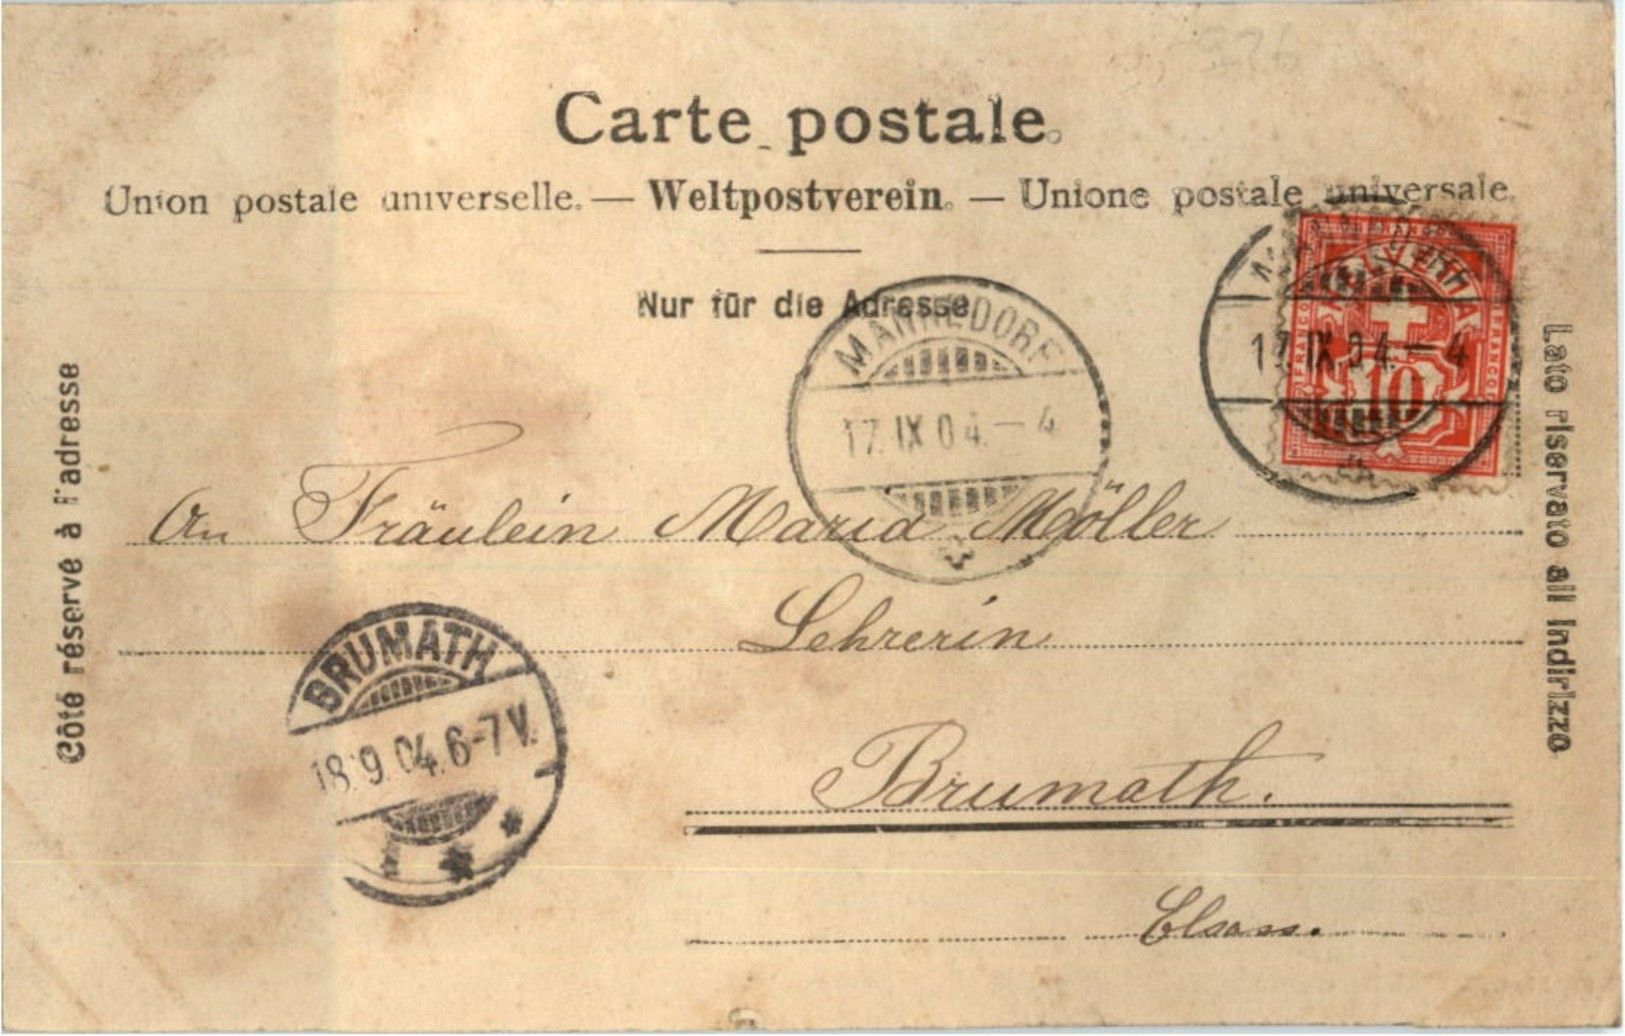 Carte postale.
Union postale universelle. — Weltpostverein. — Unione postale universale.
Nur für die Adresse
Côté réservé à l'adresse
Lato riservato all indirizzo
MÄNNEDORF
17. IX 04. — 4
17. IX 04. — 4
FRANCO
HELVETIA
10
An Fräulein Maria Möller
Lehrerin
Brumath.
Elsass.
BRUMATH
18.9.04. 6-7 V.